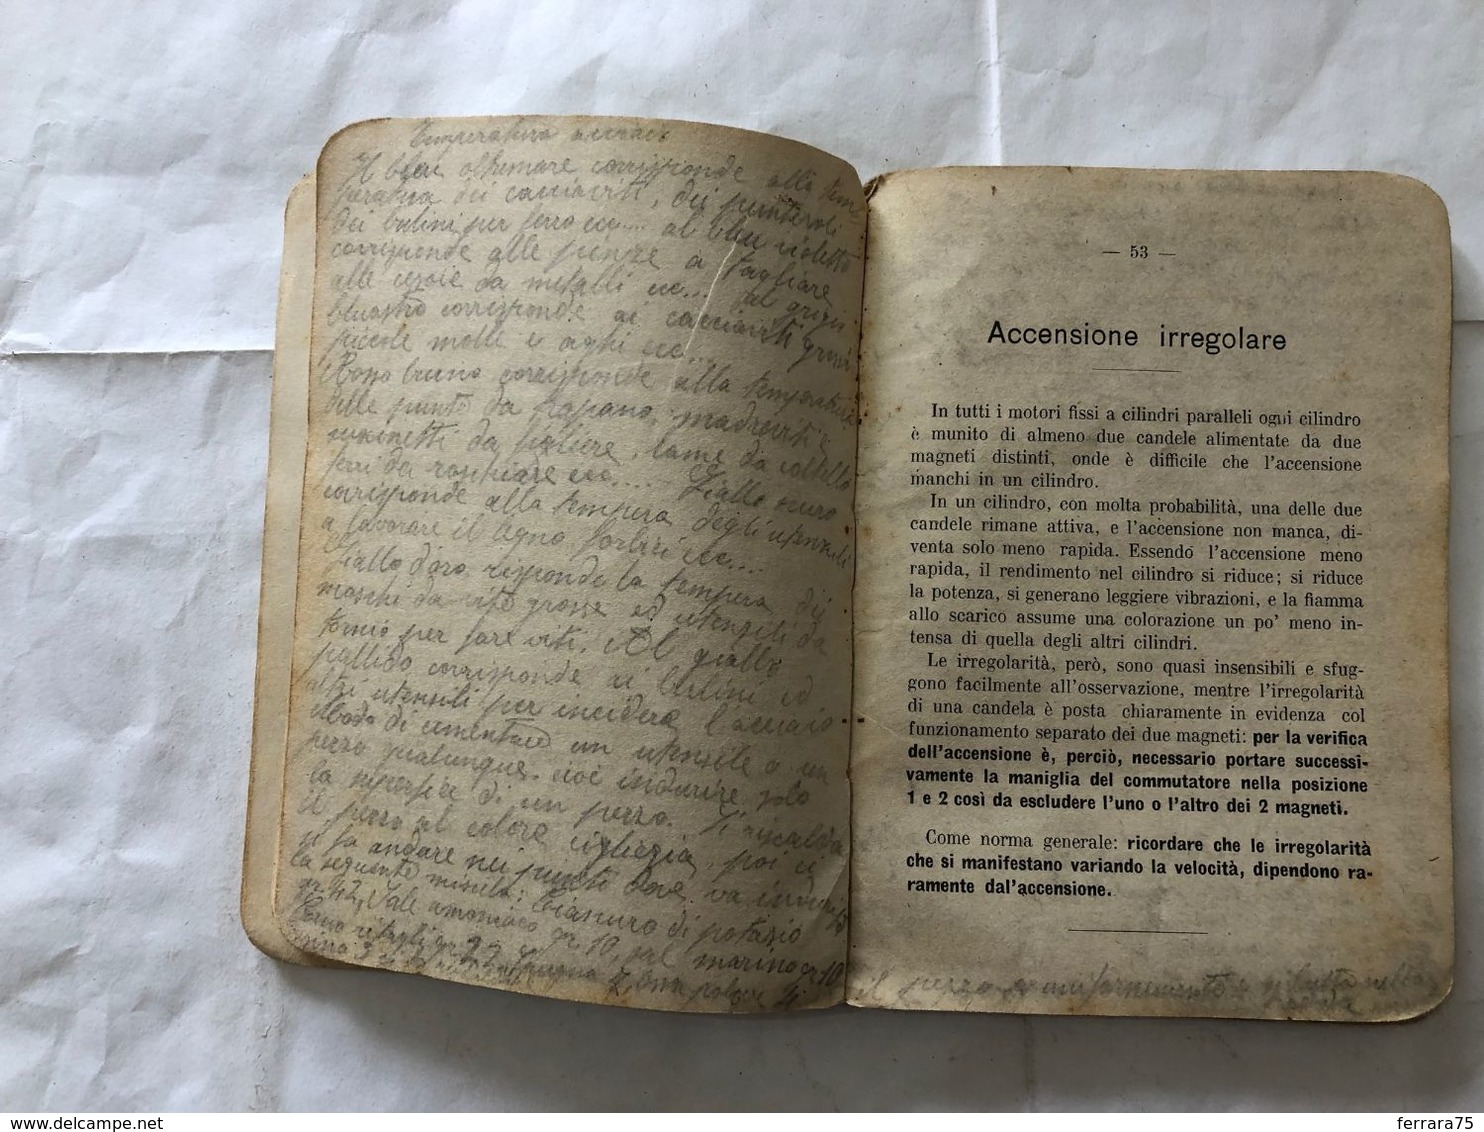 Temperatura acciaio
Il bleu oltremare corrisponde alla tem-
peratura dei cacciaviti, dei punteroli
dei bulini per ferro ecc.... al bleu violetto
corrisponde alle pinze a tagliare
alle cesoie da metalli ecc... al grigio
bluastro corrisponde ai cacciaviti grossi
piccole molle e aghi ecc...
Rosso bruno corrisponde alla temperatura
delle punte da trapano, madreviti e
cuscinetti da filiere, lame da coltello
ferri da raschiare ecc... Giallo scuro
corrisponde alla tempera degli utensili
a lavorare il legno forbici ecc...
Giallo d'oro risponde la tempera dei
maschi da vite grosse ed utensili da
tornio per fare viti. Al giallo
pallido corrisponde ai bulini ed
altri utensili per incidere l'acciaio
Modo di cementare un utensile o un
pezzo qualunque. cioè indurire solo
la superficie di un pezzo. Si riscalda
il pezzo al colore ciliegia, poi ci
si fa andare nei punti dove va indurito
la seguente miscela: Cianuro di potassio
gr. 42, Sale amoniaco gr. 10, sal marino gr 10
ritagli gr. 22
— 53 —
Accensione irregolare
In tutti i motori fissi a cilindri paralleli ogni cilindro
è munito di almeno due candele alimentate da due
magneti distinti, onde è difficile che l'accensione
manchi in un cilindro.
In un cilindro, con molta probabilità, una delle due
candele rimane attiva, e l'accensione non manca, di-
venta solo meno rapida. Essendo l'accensione meno
rapida, il rendimento nel cilindro si riduce; si riduce
la potenza, si generano leggiere vibrazioni, e la fiamma
allo scarico assume una colorazione un po' meno in-
tensa di quella degli altri cilindri.
Le irregolarità, però, sono quasi insensibili e sfug-
gono facilmente all'osservazione, mentre l'irregolarità
di una candela è posta chiaramente in evidenza col
funzionamento separato dei due magneti: per la verifica
dell'accensione è, perciò, necessario portare successi-
vamente la maniglia del commutatore nella posizione
1 e 2 così da escludere l'uno o l'altro dei 2 magneti.
Come norma generale: ricordare che le irregolarità
che si manifestano variando la velocità, dipendono ra-
ramente dal'accensione.
il pezzo uniformemente e
ferrara75